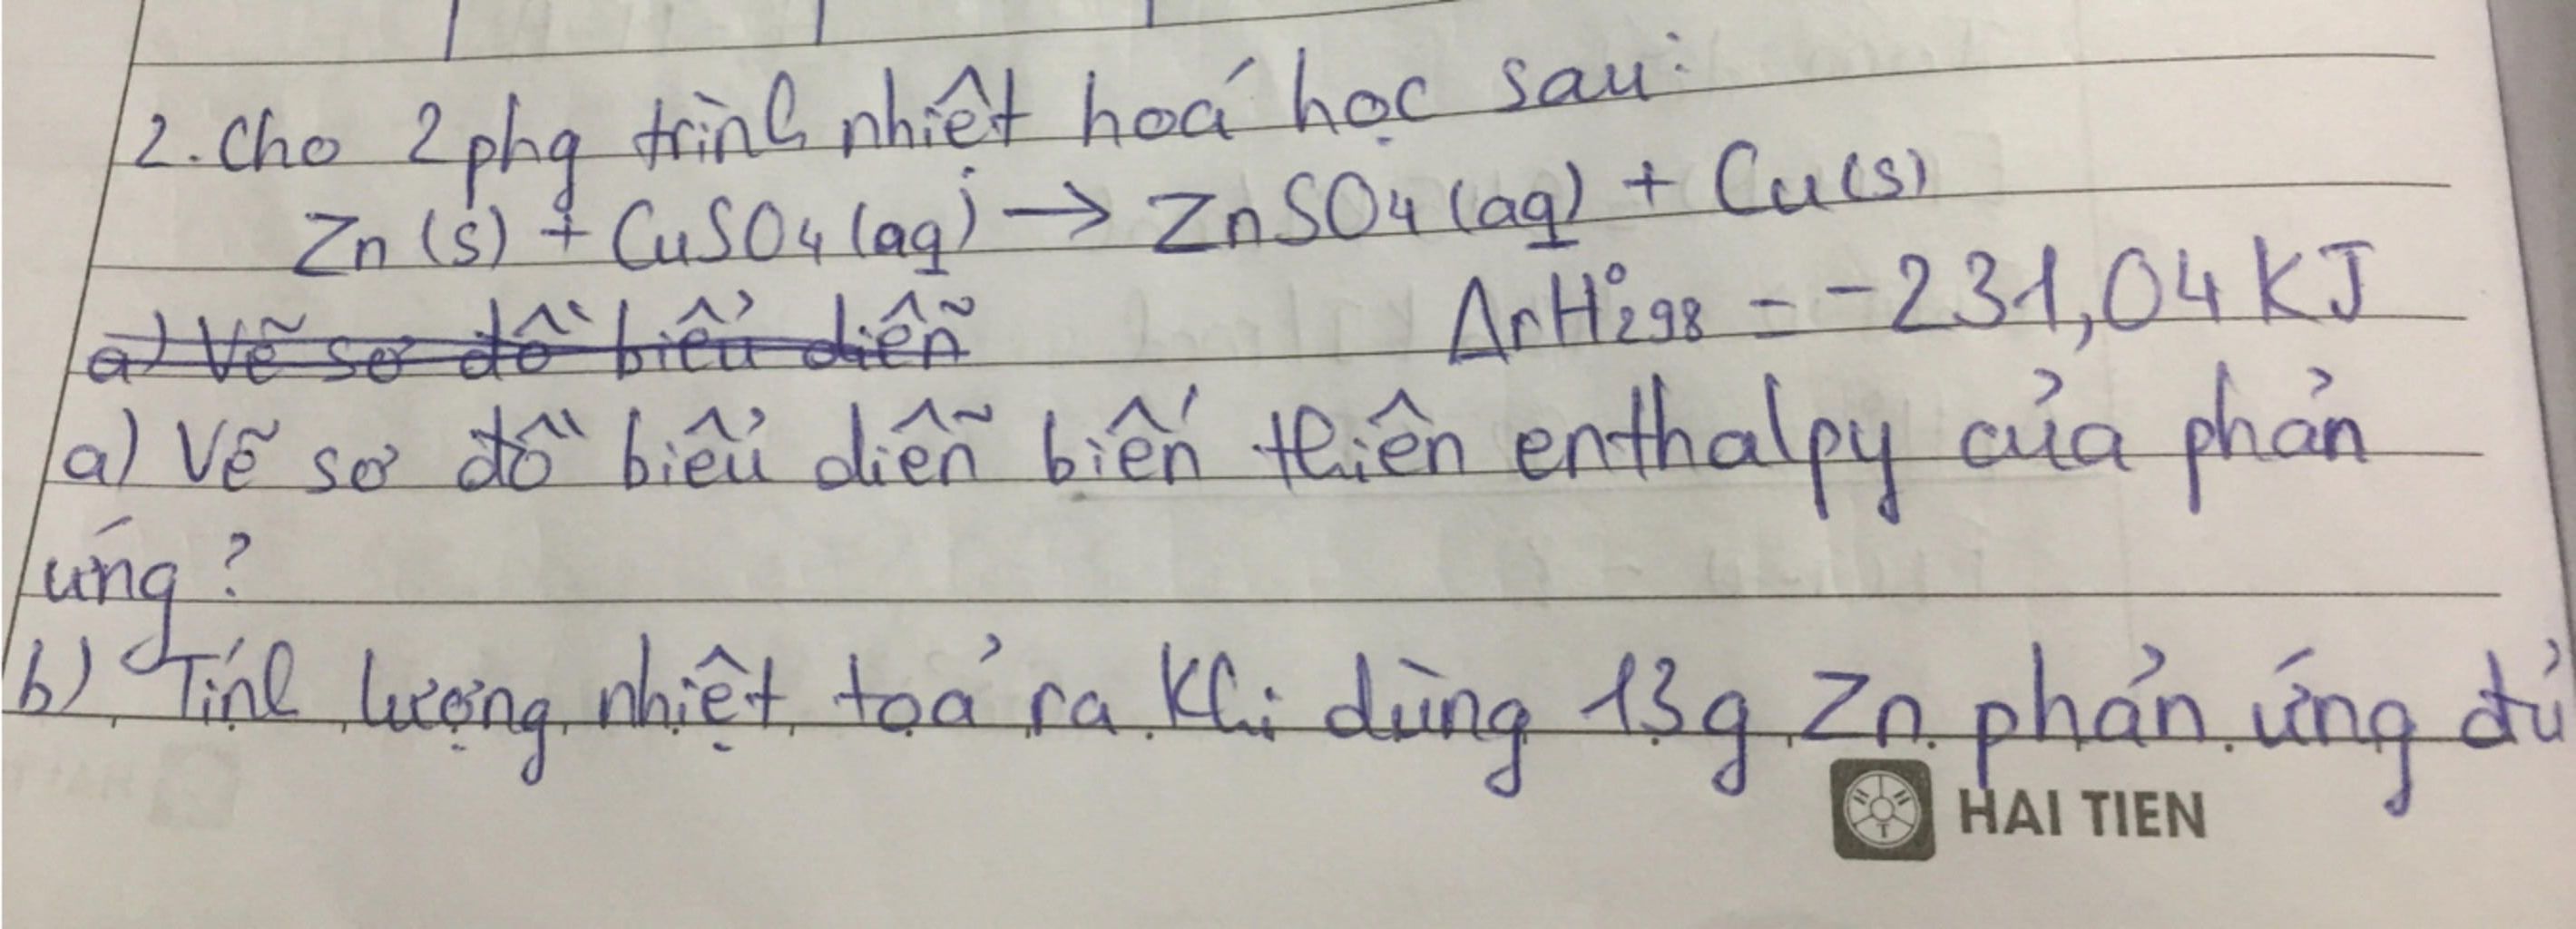 2. Cho 2 phg trình nhiệt hoá học sau:
Zn (s) + CuSO4 (aq) → ZnSO4 (aq) + Cu (s)
ΔrH°298 = -231,04 KJ
a) Vẽ sơ đồ biểu diễn
a) Vẽ sơ đồ biểu diễn biến thiên enthalpy của phản
ứng?
b) Tính lượng nhiệt toả ra khi dùng 13g Zn phản ứng đủ
HAI TIEN